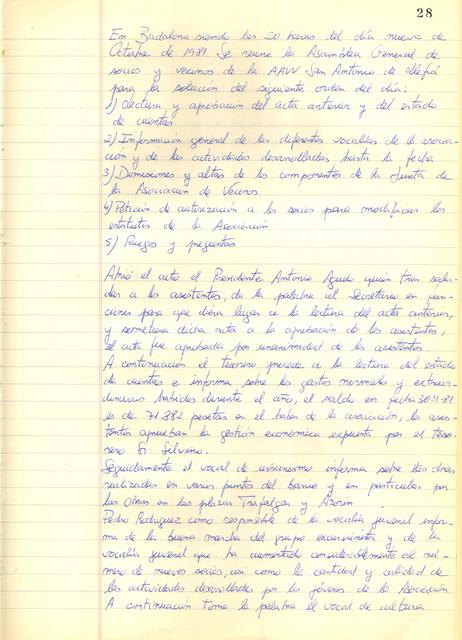 28
En Badalona siendo las 20 horas del día nueve de
Octubre de 1981 Se reune la Asamblea General de
socios y vecinos de la AAVV San Antonio de Llefiá
para la solucion del siguiente orden del día:
1) Lectura y aprobación del acta anterior y del estado
de cuentas
2) Información general de las diferentes vocalías de la asocia-
ción y de las actividades desarrolladas hasta la fecha
3) Dimisiones y altas de los componentes de la Junta de
la Asociación de Vecinos.
4) Petición de autorización a los socios para modificar los
estatutos de la Asociación
5) Ruegos y preguntas
Abrió el acto el Presidente Antonio quien tras salu-
dar a los asistentes, da la palabra al Secretario en fun-
ciones para que diera lugar a la lectura del acta anterior,
y sometiera dicha acta a la aprobación de los asistentes,
el acta fue aprobada por unanimidad de los asistentes.
A continuación el tesorero procede a la lectura del estado
de cuentas e informa sobre los gastos normales y extraor-
dinarios habidos durante el año, el saldo en fecha 30-9-81
es de 71.882 pesetas en el haber de la asociación, los asis-
tentes aprueban la gestión económica expuesta por el teso-
rero Sr Silvino.
Seguidamente el vocal de urbanismo informa sobre las obras
realizadas en varios puntos del barrio y en particular por
las obras en las plazas Trafalgar y Azorín
Pedro Rodriguez como responsable de la vocalía juvenil infor-
ma de la buena marcha del grupo excursionista y de la
vocalía juvenil que ha aumentado considerablemente de nú-
mero de nuevos socios, asi como la cantidad y calidad de
las actividades desarrolladas por los jóvenes de la Asociación
A continuación toma la palabra el vocal de cultura